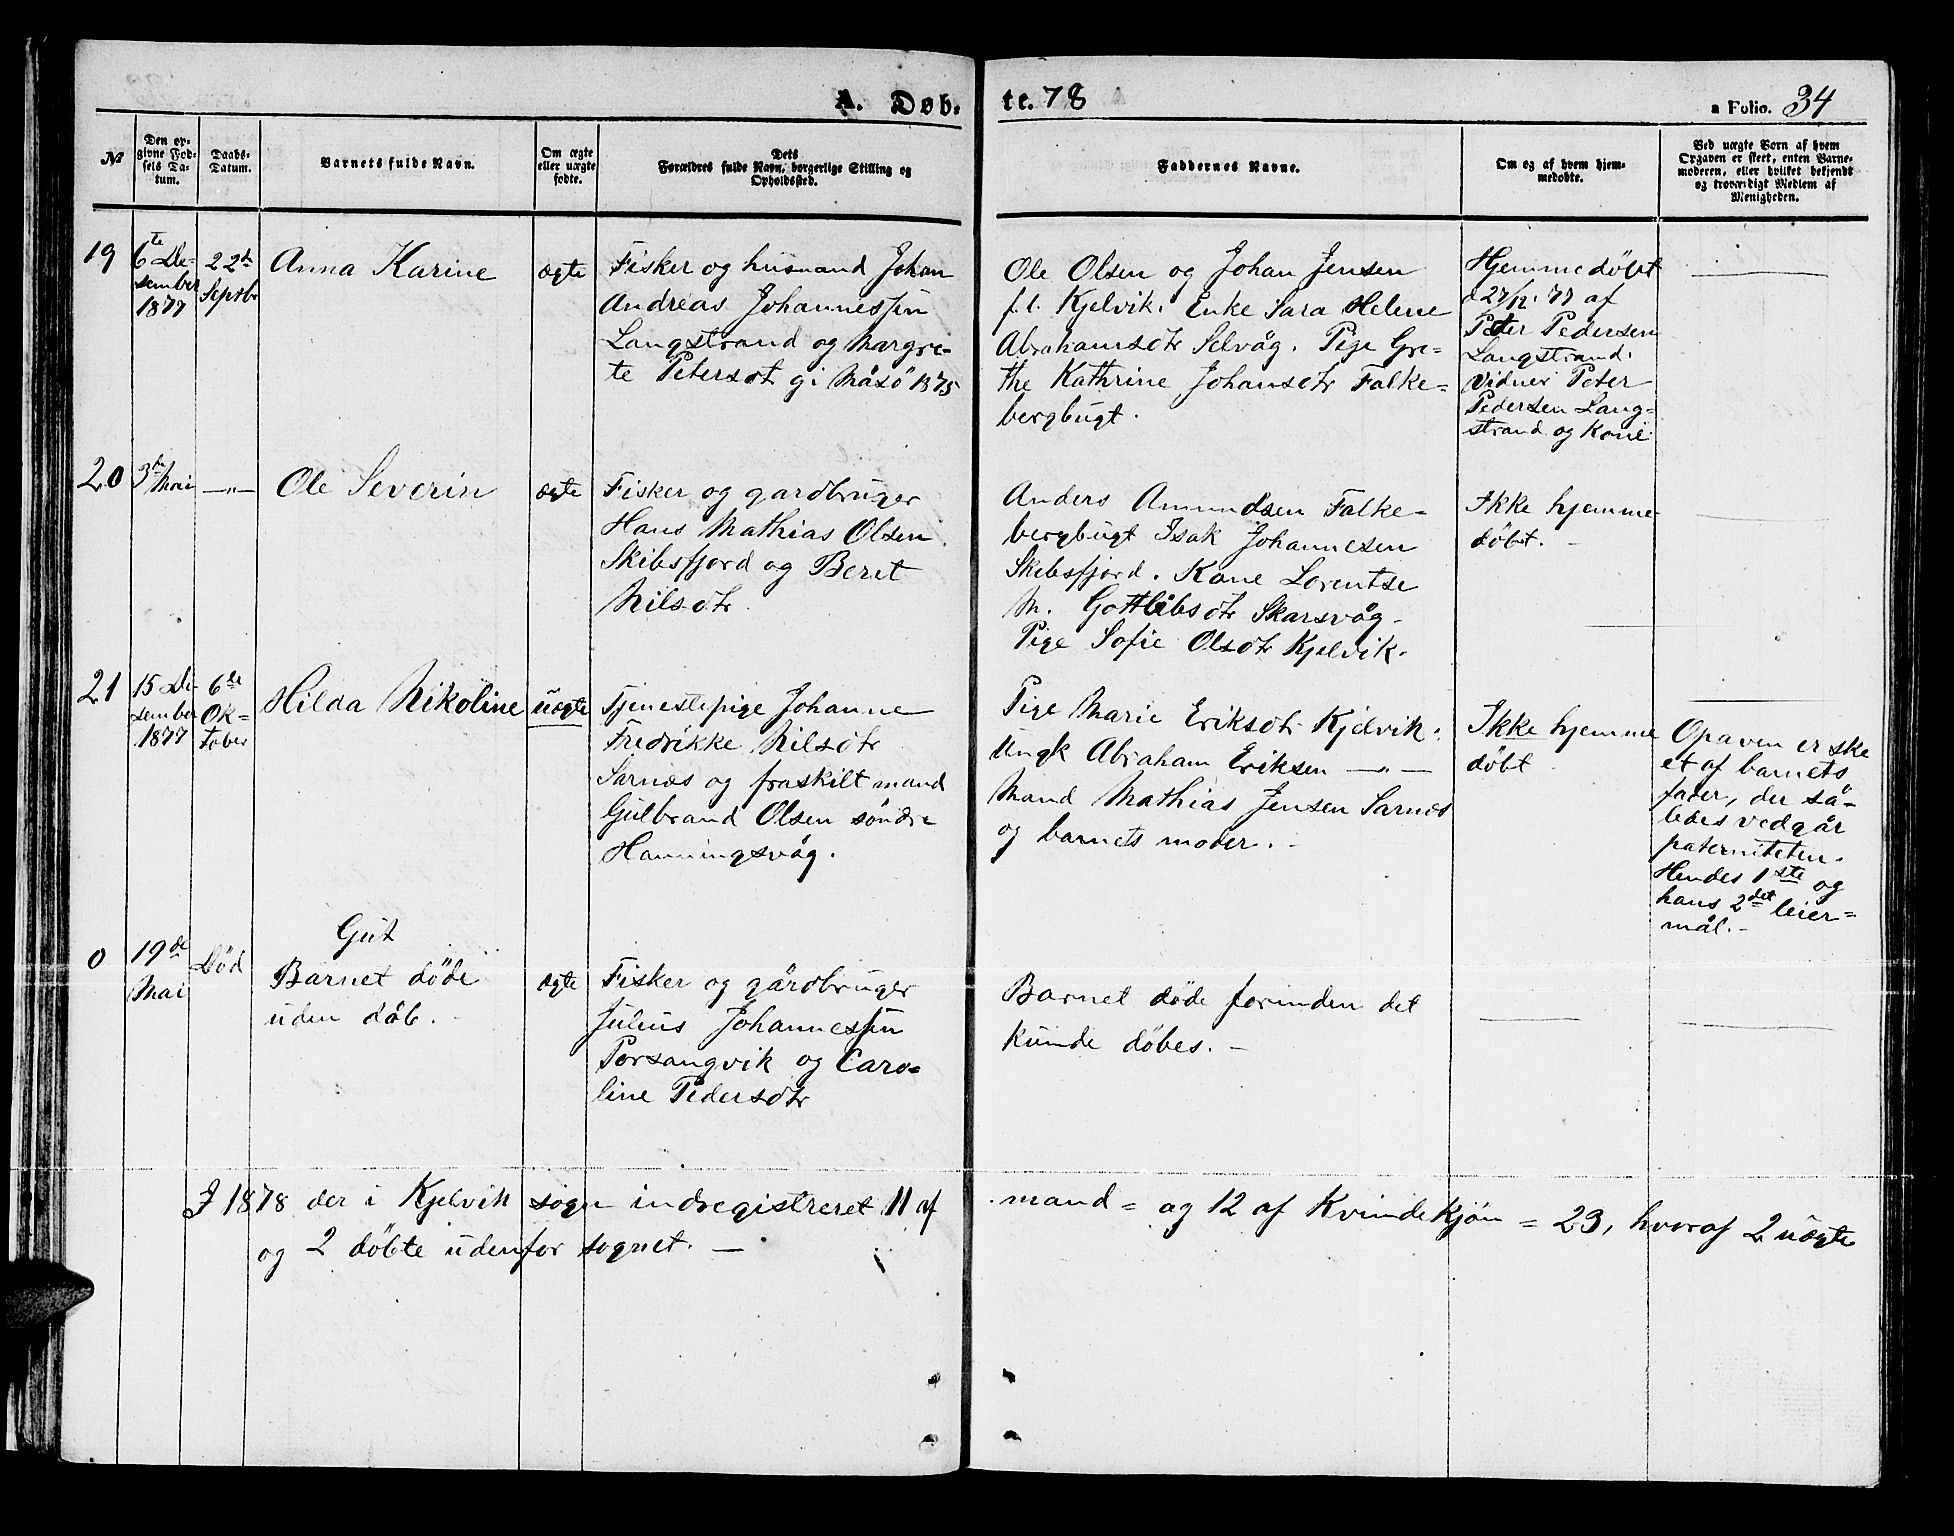 A. Døb.
te. 78
a Folio. 34
№
Den op-
givne Fød-
sels Da-
tum.
Daabs-
Datum.
Barnets fulde Navn.
Om ægte
eller uægte
fødte.
Dets
Forældres fulde Navn, borgerlige Stilling og
Opholdssted.
Faddernes Navne.
Om og af hvem hjem-
medøbte.
Ved uægte Børn af hvem
Opgaven er skeet, enten Barne-
moderen, eller hvilket bekjendt
og troværdigt Medlem af
Menigheden.
19
6te De-
sember
1877
22de
Septbr
Anna Karine
ægte
Fisker og husmand Johan
Andreas Johannessen
Langstrand og Margre-
te Petersdt gi Måsö 1875
Ole Olsen og Johan Jensen
f. l. Kjelvik. Enke Sara Helene
Abrahamsdtr Selvåg. Pige Gre-
the Kathrine Johansdtr Falke-
bergbugt.
Hjemmedöbt
d 27/12. 77 af
Peter Pedersen
Langstrand.
Vidner Peter
Pedersen Lang-
strand og Kone
20
3de Mai
—„—
Ole Severin
ægte
Fisker og gardbruger
Hans Mathias Olsen
Skibsfjord og Beret
Nilsdtr.
Anders Amundsen Falke-
bergbugt Isak Johannesen
Skibsfjord. Kone Lorentse
M. Gottlibsdtr Skarsvåg.
Pige Sofie Olsdtr Kjelvik.
Ikke hjemme
döbt. -
21
15 De-
sember
1877
6te
Ok-
tober
Hilda Nikoline
uægte
Tjenestepige Johanne
Fredrikke Nilsdtr
Sarnæs og fraskilt mand
Gulbrand Olsen söndre
Hanningsvåg.
Pige Marie Eriksdtr Kjelvik.
Ungk Abraham Eriksen —„—
Mand Mathias Jensen Sarnæs
og barnets moder. -
Ikke hjemme
döbt
Opaven er ske
et af barnets
fader, der så-
ledes vedgår
paterniteten.
Hendes 1ste og
hans 2det leier-
mål. -
0
19de
Mai
Död
Gut
Barnet döde
uden dåb. -
ægte
Fisker og gårdbruger
Julius Johannessen
Porsangvik og Caro-
line Pedersdtr
Barnet döde forinden det
kunde döbes. -
I 1878 der i Kjelvik sogn indregistreret 11 af mand= og 12 af Kvindekjön = 23, hvoraf 2 uægte
og 2 döbte udenfor sognet. —